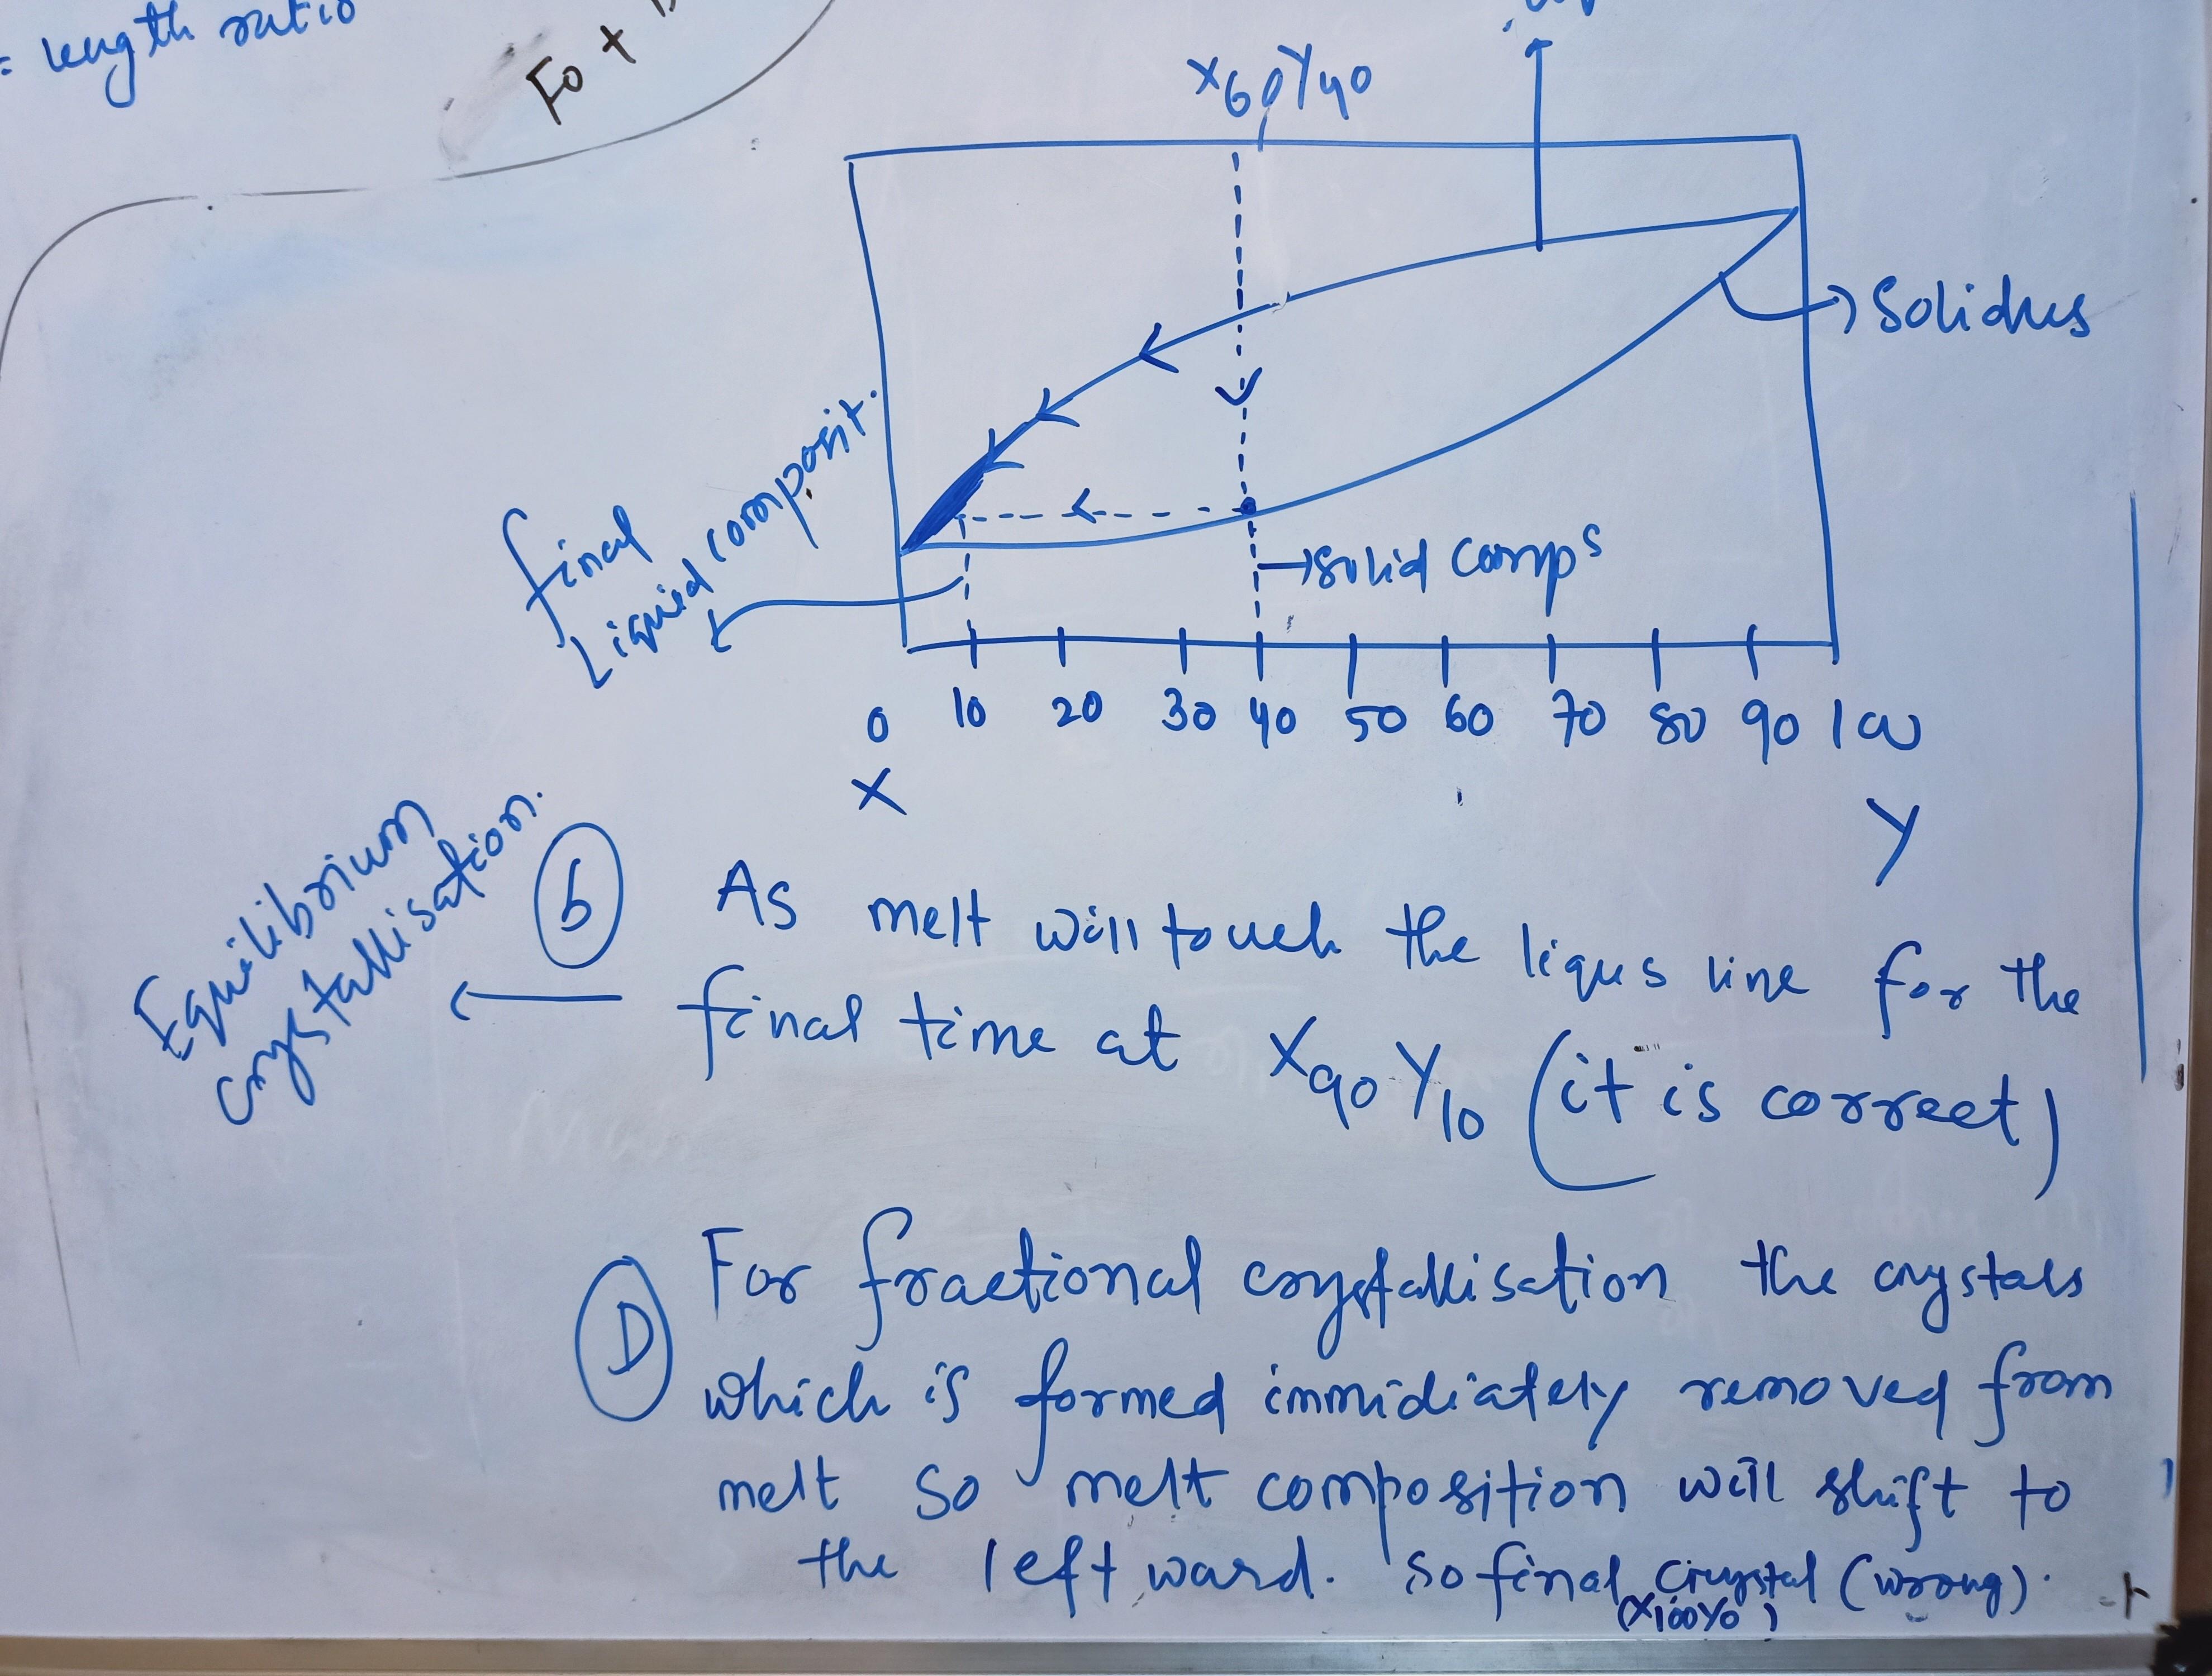 = length ratio
Fo +
X60Y40
→ Solidus
final
Liquid composit.
→ solid comps
0 10 20 30 40 50 60 70 80 90 100
X
Y
Equilibrium
crystallisation.
b
As melt will touch the liqus line for the
final time at X90 Y10 (it is correct)
D
For fractional crystallisation the crystals
which is formed immidiately removed from
melt so melt composition will shift to
the left ward. so final crystal (wrong).
(X100Y0)